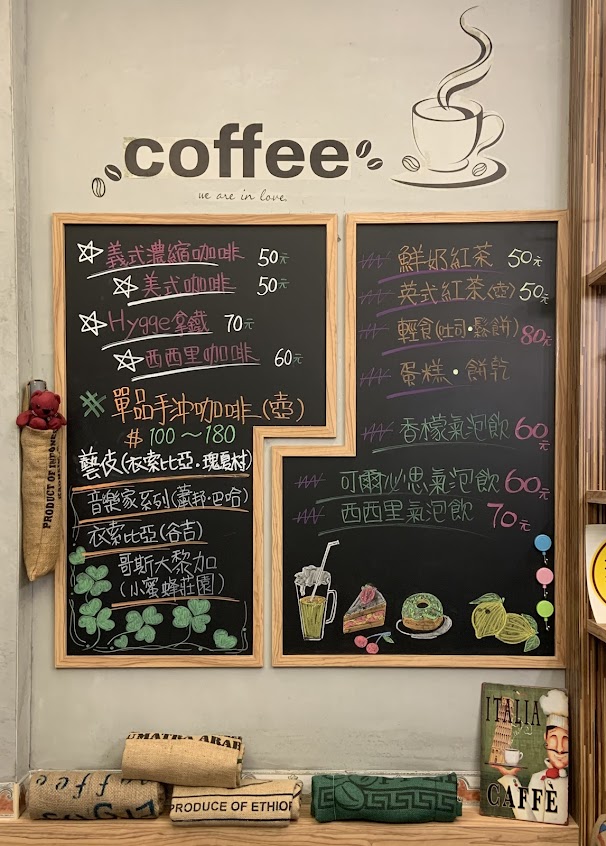 coffee
we are in love.
義式濃縮咖啡 50元
美式咖啡 50元
Hygge拿鐵 70元
西西里咖啡 60元
單品手沖咖啡(壺)
#100～180
藝伎(衣索比亞·瑰夏村)
音樂家系列(蕭邦·巴哈)
衣索比亞(谷吉)
哥斯大黎加
(小蜜蜂莊園)
鮮奶紅茶 50元
英式紅茶(壺) 50元
輕食(吐司·鬆餅) 80元
蛋糕·餅乾
香檬氣泡飲 60元
可爾必思氣泡飲 60元
西西里氣泡飲 70元
PRODUCT OF
UMATRA ARAB
PRODUCE OF ETHIOP
ITALIA
CAFFÈ